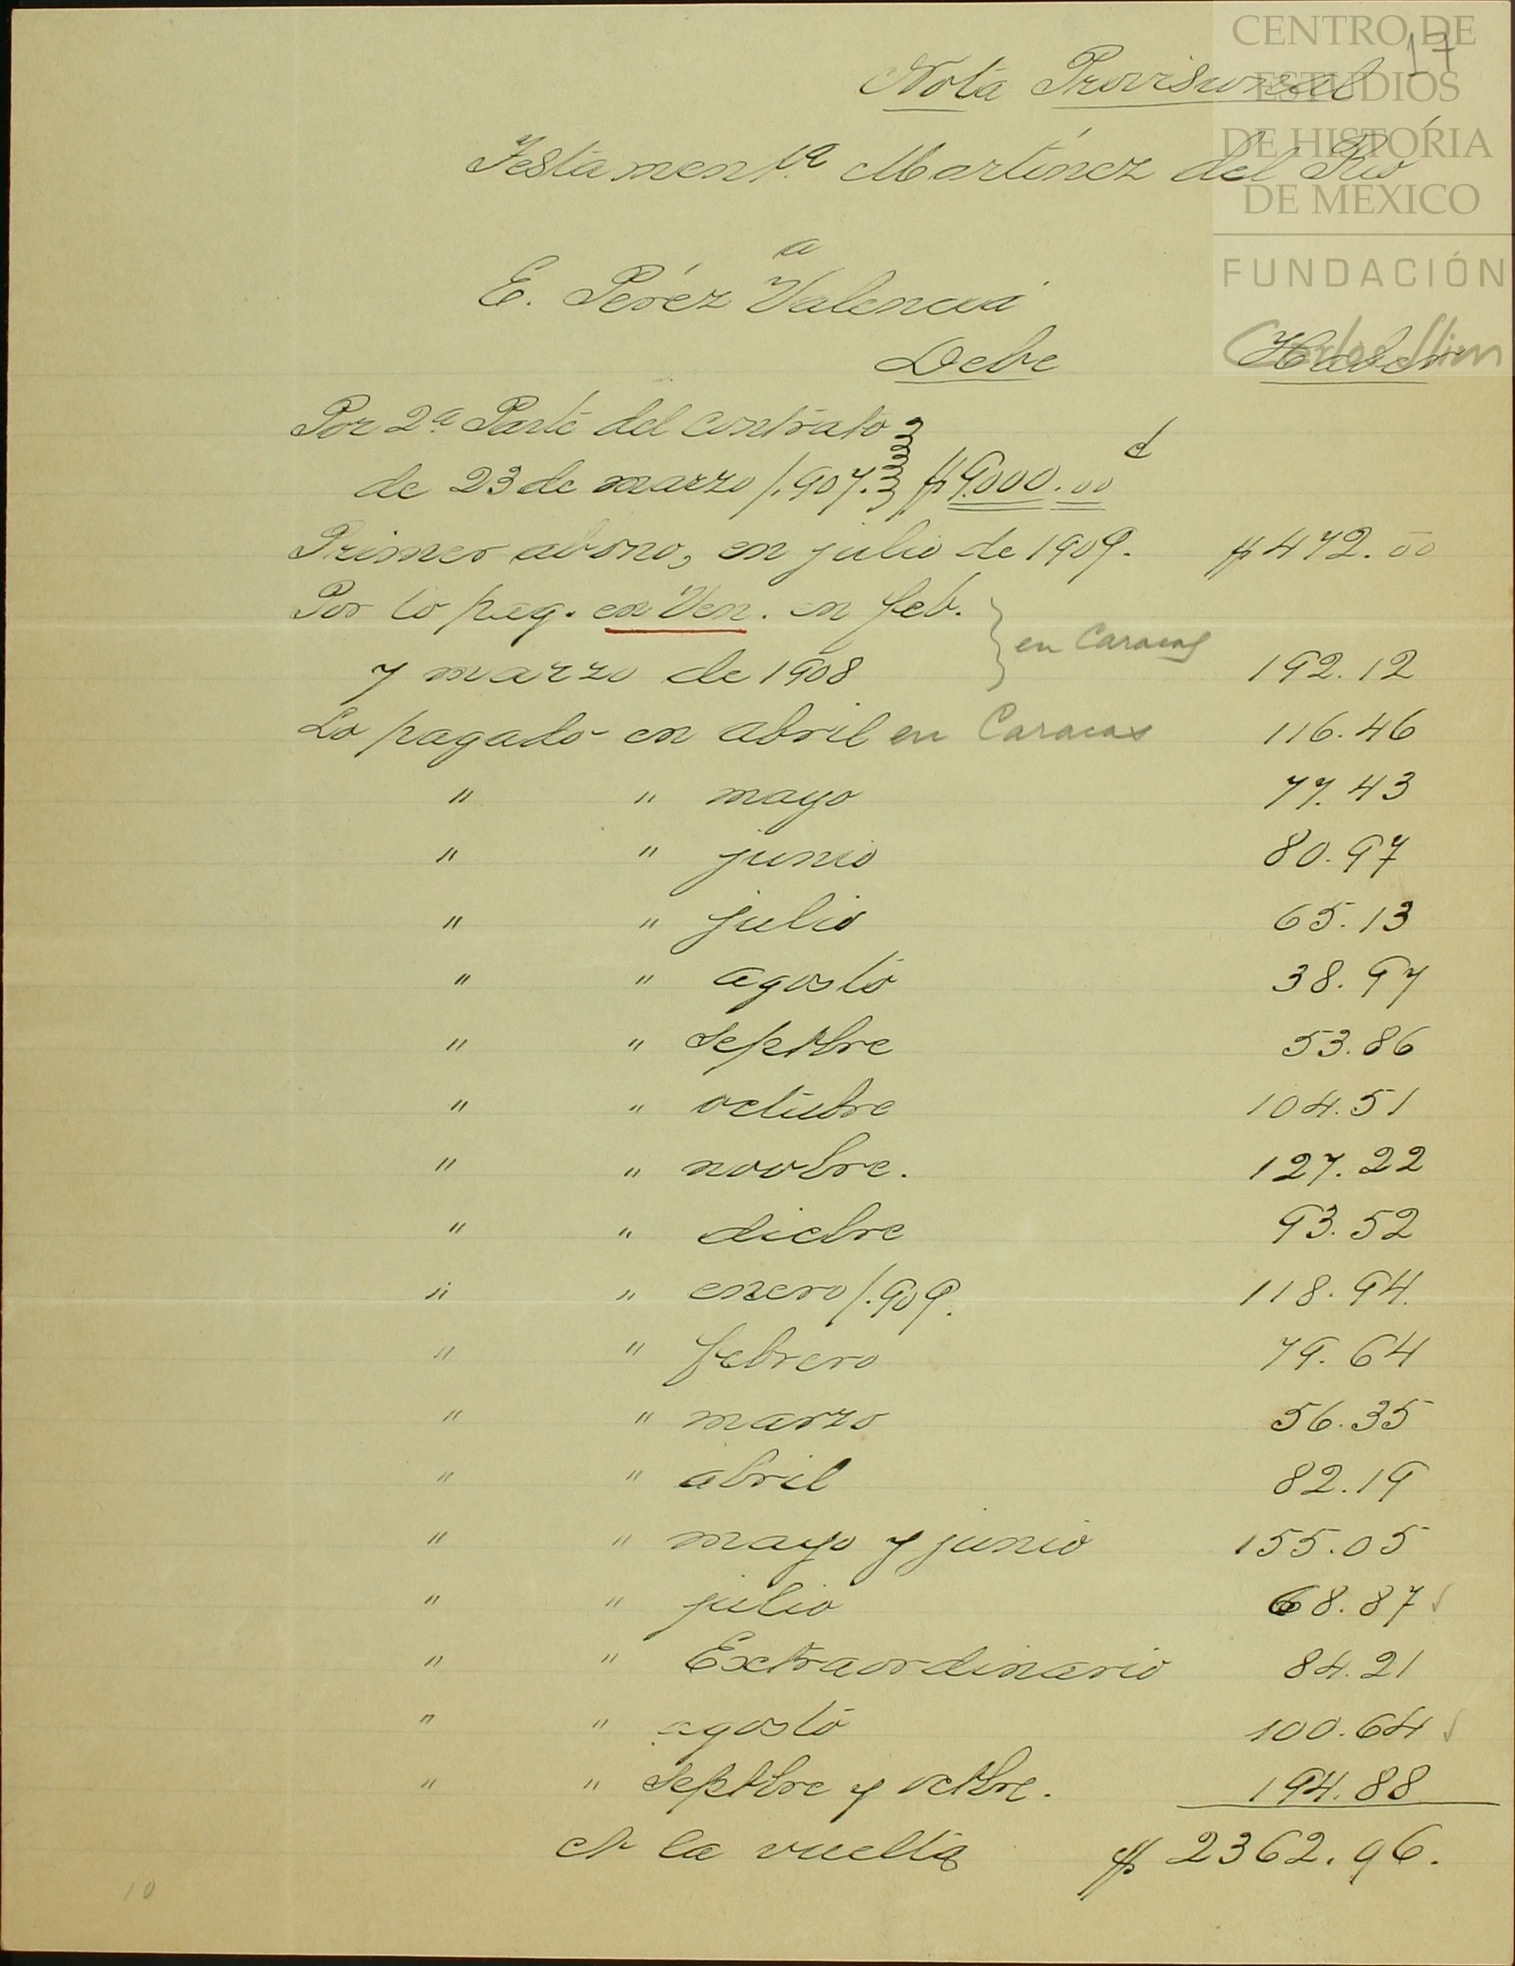 17
Nota Provisional
Testament.ª Martínez del Río
a
E. Pérez Valencia
Debe Haber
Por 2ª Parte del contrato
de 23 de marzo 1.907. $9.000.00
Primer abono, en julio de 1909. $472.00
Por lo pag. en Ven. en feb.
en Caracas
y marzo de 1908 192.12
Lo pagado en abril en Caracas 116.46
" " mayo 77.43
" " junio 80.97
" " julio 65.13
" " agosto 38.97
" " Septbre 53.86
" " octubre 104.51
" " novbre. 127.22
" " dicbre 93.52
" " enero 1.909. 118.94.
" " febrero 79.64
" " marzo 56.35
" " abril 82.19
" " mayo y junio 155.05
" " julio 68.87 √
" " Extraordinario 84.21
" " agosto 100.64 √
" " Septbre y octbre. 194.88
A la vuelta $ 2362.96.
10
CENTRO DE
ESTUDIOS
DE HISTORIA
DE MEXICO
FUNDACIÓN
Carlos Slim